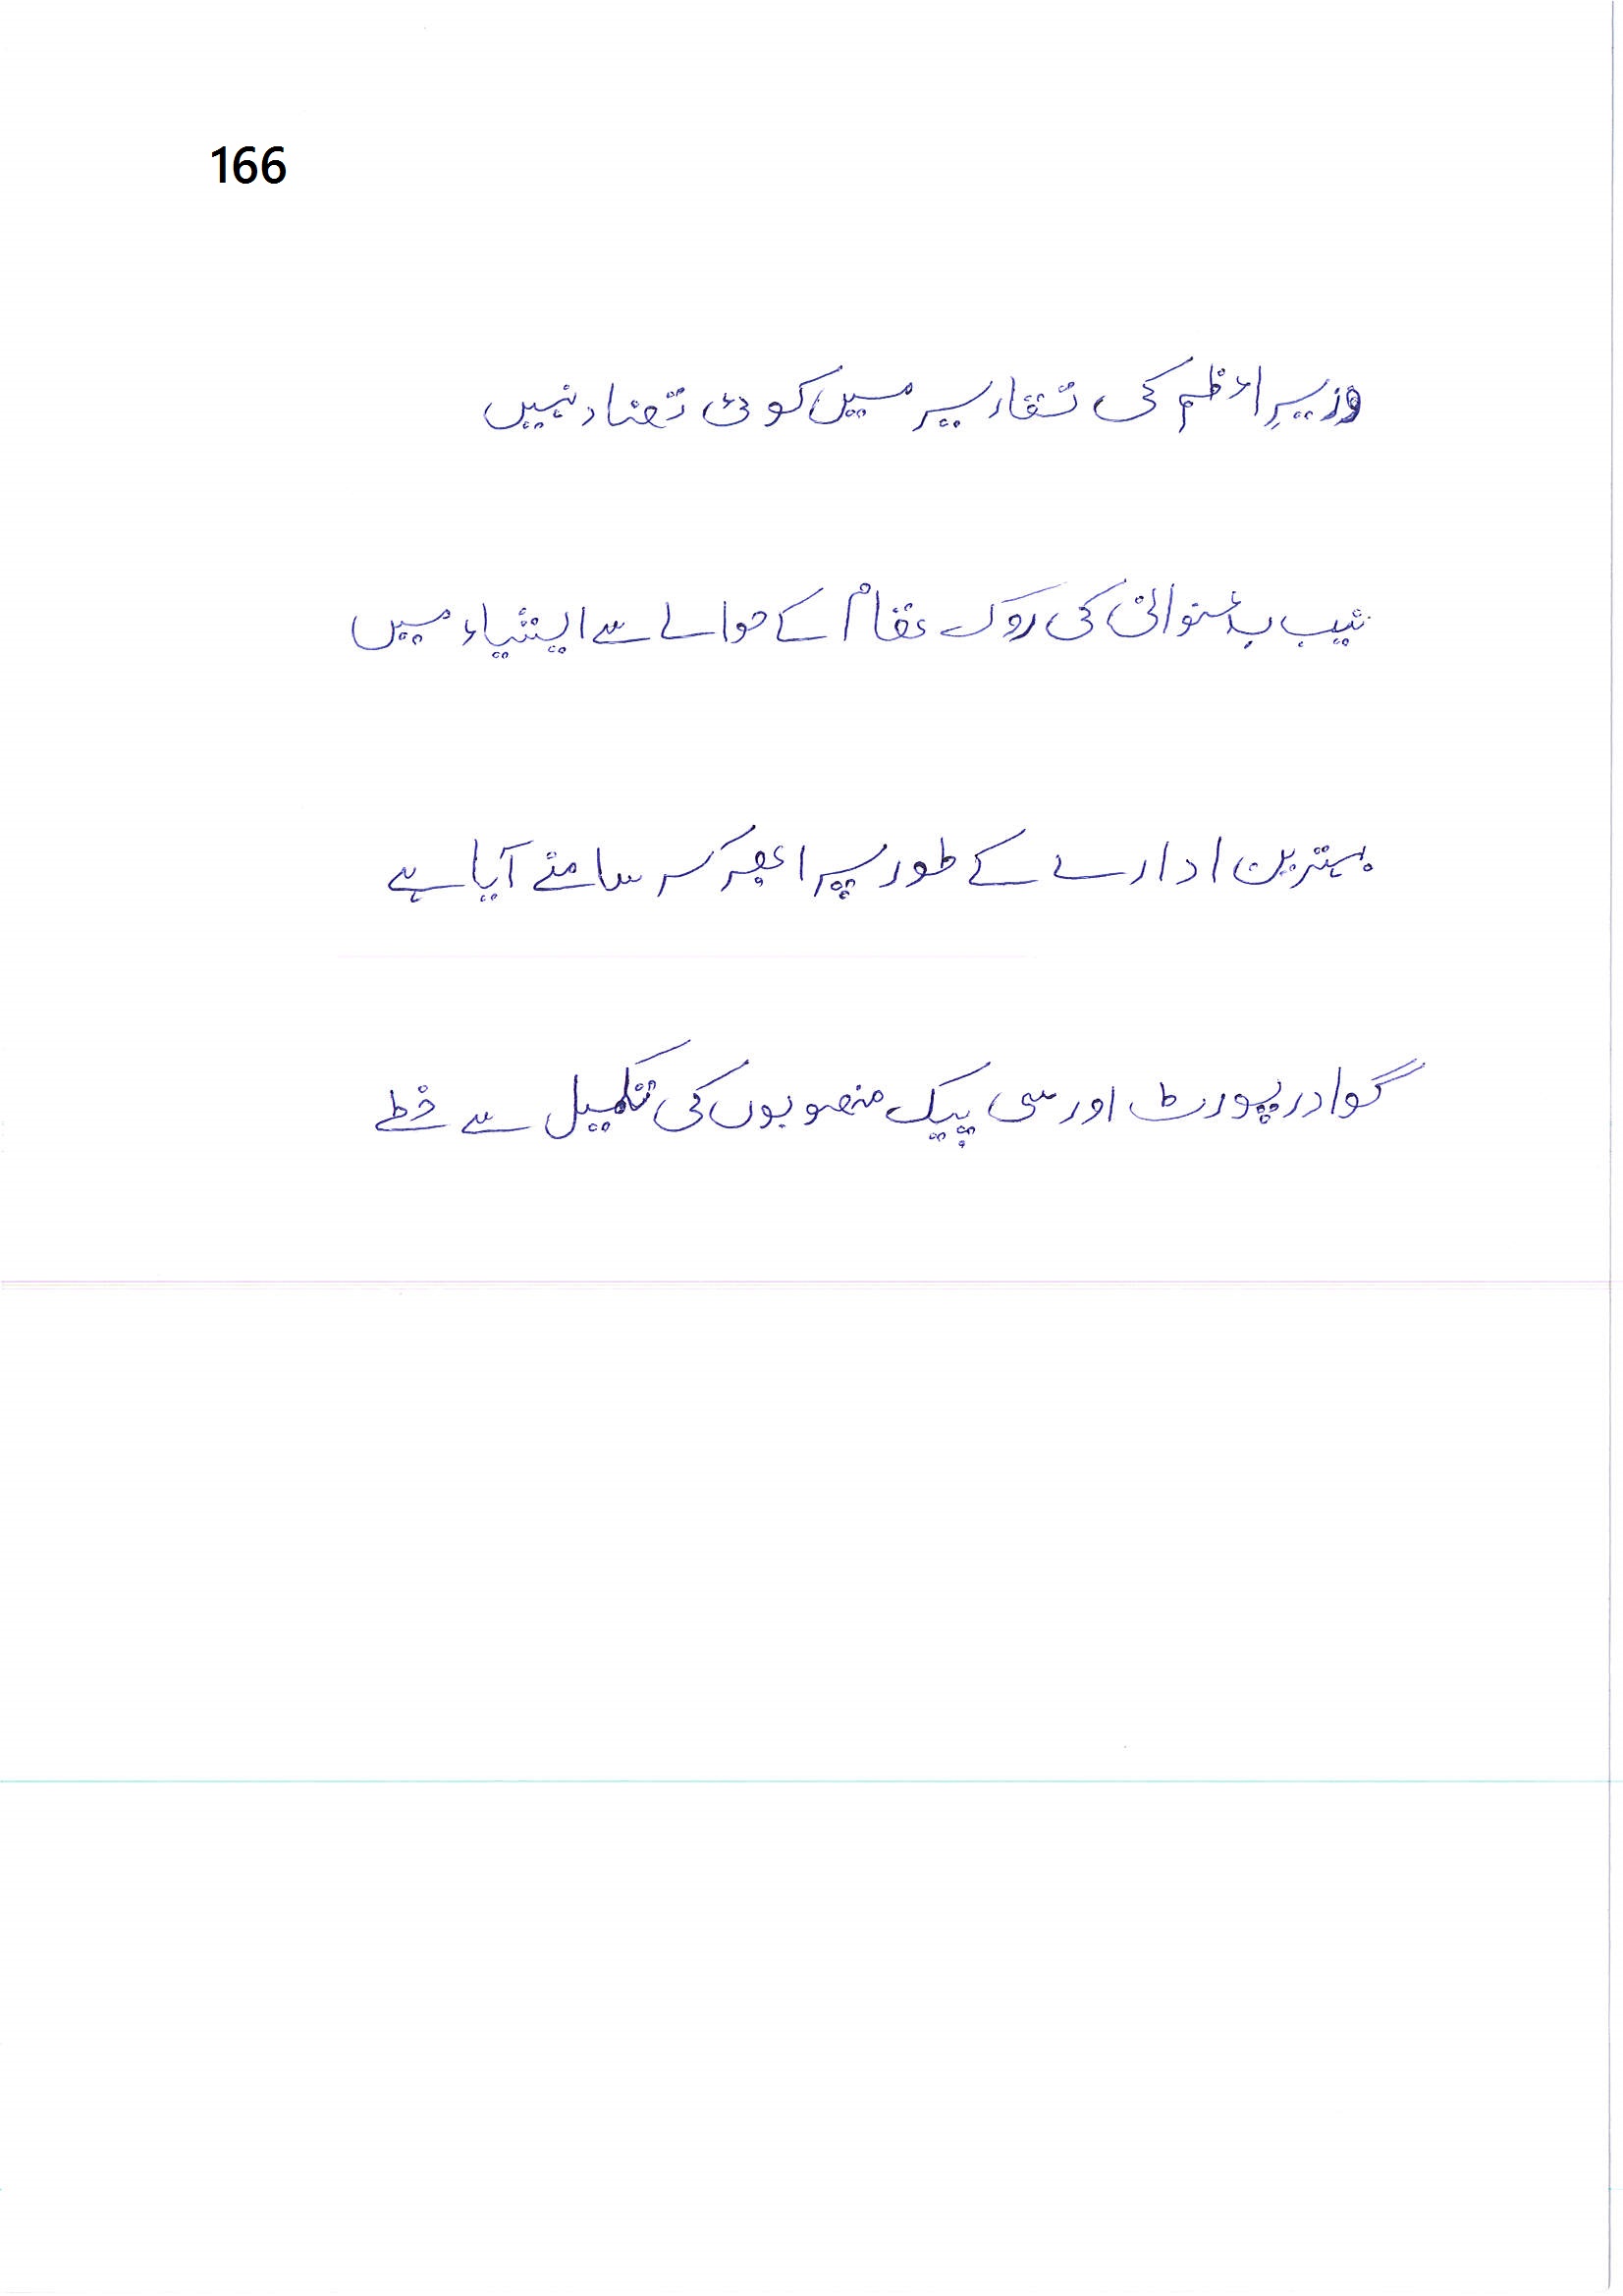 166
وزیرِ اعظم کی تقاریر میں کوئی تضاد نہیں
نیب بدعنوانی کی روک تھام کے حوالے سے ایشیاء میں
بہترین ادارے کے طور پر ابھر کر سامنے آیا ہے
گوادر پورٹ اور سی پیک منصوبوں کی تکمیل سے خطے